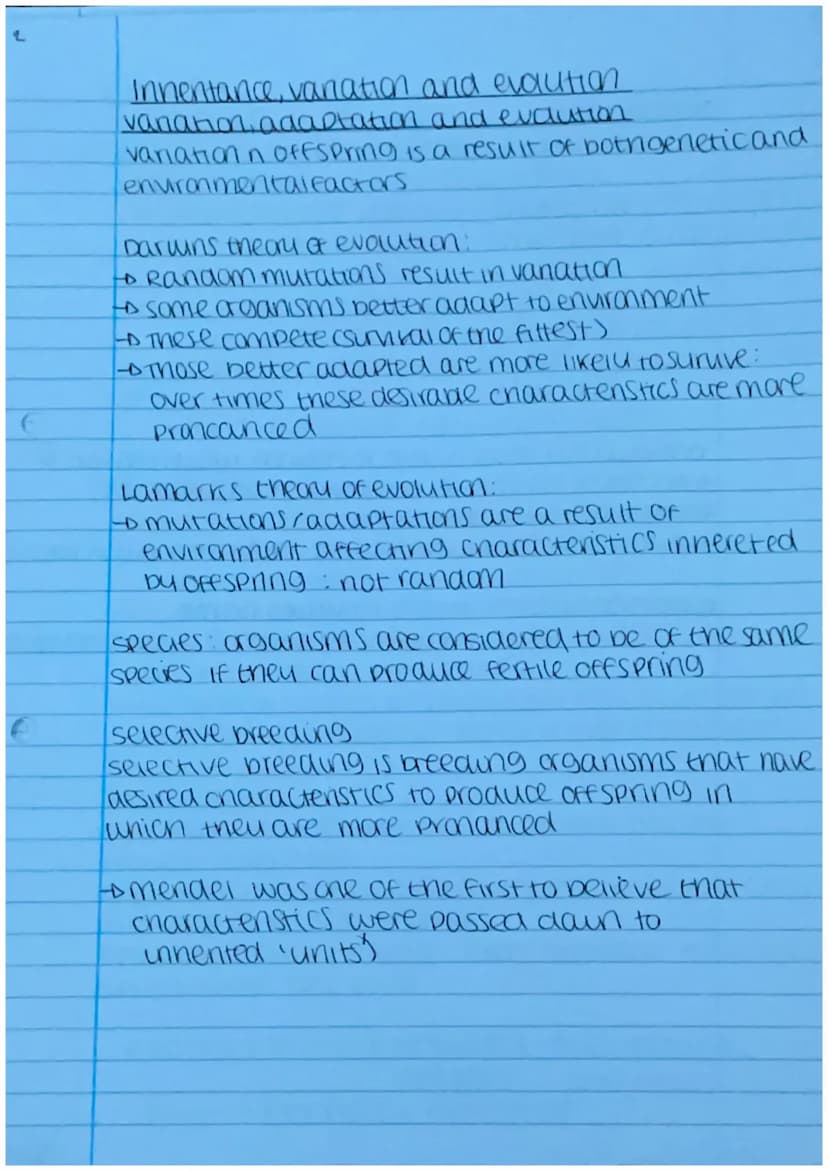 Inheritance, variation and evolution
variation, adaptation and evolution
variation n offspring is a result of both genetic and
environmental factors
Darwins theory of evolution:
→ Random mutations result in variation
→ some organisms better adapt to environment
→ These compete (survival of the fittest)
→ Those better adapted are more likely to suruve:
over times these desirable characteristics are more
proncanced
Lamarks theory of evolution:
→ mutations/adaptations are a result of
environment affecting characteristics inhereted
by offspring : not random
species: organisms are considered to be of the same
species if they can produce fertile offspring
selective breeding
selective breeding is breeding organisms that have
desired characteristics to produce offspring in
which they are more pronanced
→ mendel was one of the first to believe that
characteristics were passed down to
inherited 'units'